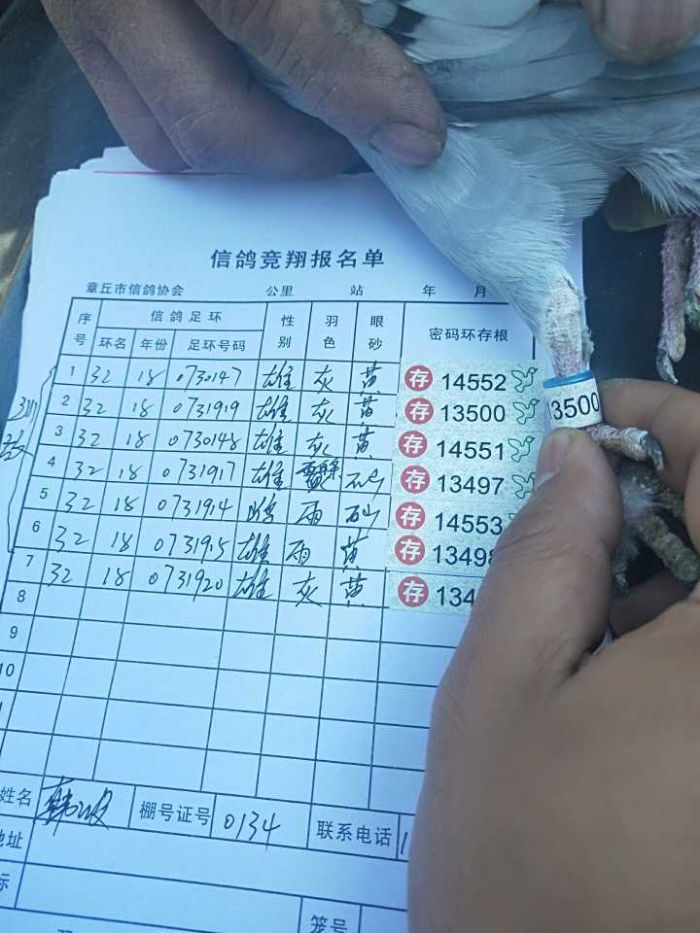 信鸽竞翔报名单
章丘市信鸽协会 公里 站 年 月
序号 信鸽足环 性别 羽色 眼砂 密码环存根
环名 年份 足环号码
1 32 18 0730147 雄 灰 黄 存 14552
2 32 18 0731919 雄 灰 黄 存 13500
3 32 18 0730148 雄 灰 黄 存 14551
4 32 18 0731917 雄 存 13497
5 32 18 0731914 雨 砂 存 14553
6 32 18 0731915 雄 雨 黄 存 1349
7 32 18 0731920 雄 灰 黄 存 134
8
9
10
姓名 韩 棚号证号 0134 联系电话 1
地址
笼号
13500